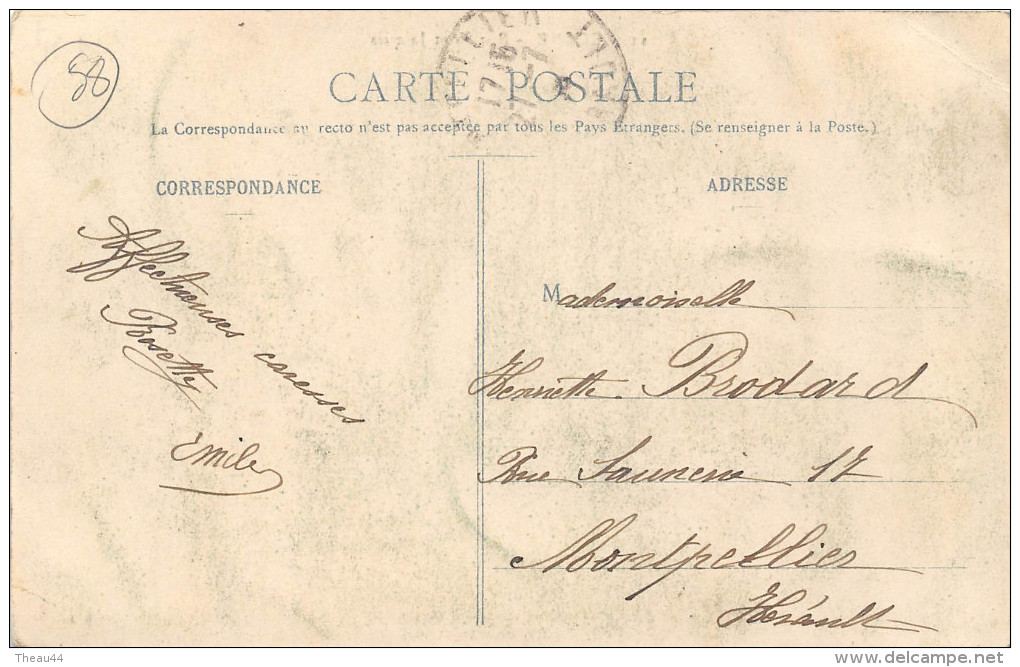 58
CARTE POSTALE
La Correspondance au recto n'est pas acceptée par tous les Pays Étrangers. (Se renseigner à la Poste.)
17 15
27-7
CORRESPONDANCE
Affectueuses caresses
Rosette
Emile
ADRESSE
Mademoiselle
Henriette Brodard
Rue Saunerie 17
Montpellier
Hérault
Theau44
delcampe.net